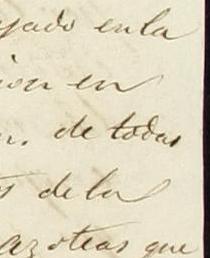 yado en la
ion en
n. de todas
s de la
azoteas que